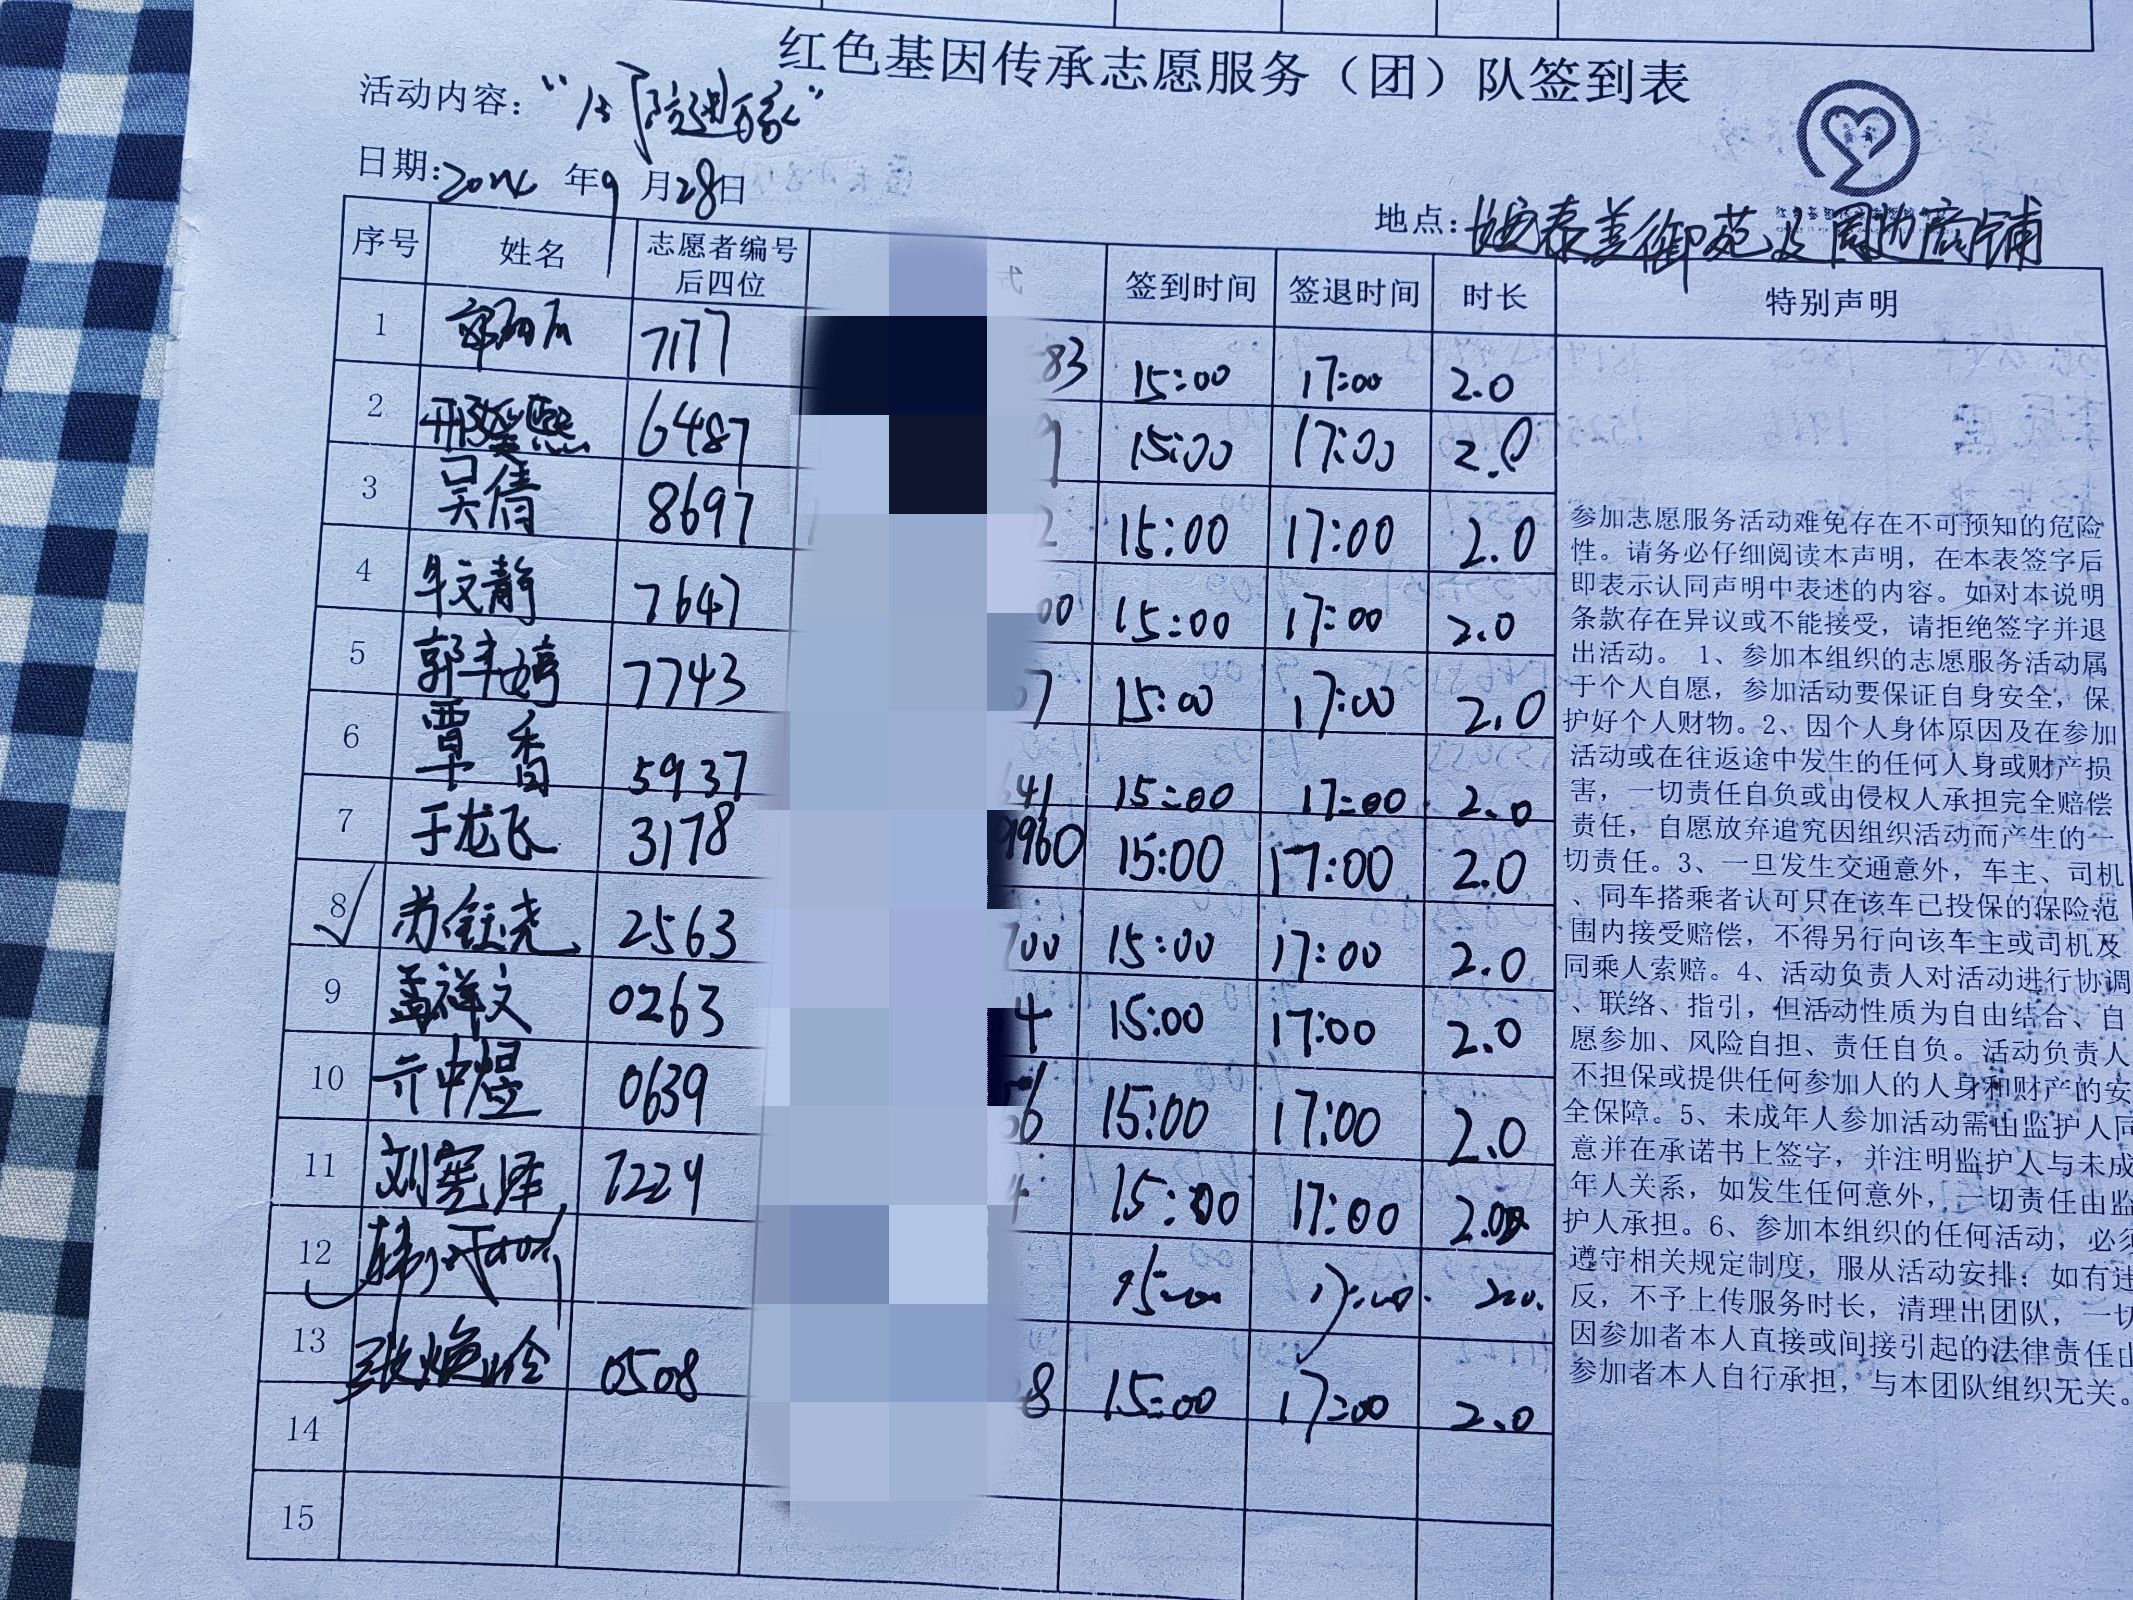 红色基因传承志愿服务（团）队签到表
活动内容：
日期：2024年9月28日
地点：姬泰美御苑及周边商铺
序号 姓名 志愿者编号后四位 签到时间 签退时间 时长 特别声明
1 7177 83 15:00 17:00 2.0
2 6487 9 15:00 17:00 2.0
3 吴倩 8697 2 15:00 17:00 2.0
4 牟文静 7647 00 15:00 17:00 2.0
5 郭丰婷 7743 67 15:00 17:00 2.0
6 覃香 5937 641 15:00 17:00 2.0
7 于龙飞 3178 9960 15:00 17:00 2.0
8 2563 700 15:00 17:00 2.0
9 孟祥文 0263 4 15:00 17:00 2.0
10 亓中煜 0639 56 15:00 17:00 2.0
11 刘宪泽 7229 4 15:00 17:00 2.00
12 15:00 17:00
13 张焕玲 0508 28 15:00 17:00 2.0
14
15
参加志愿服务活动难免存在不可预知的危险
性。请务必仔细阅读本声明，在本表签字后
即表示认同声明中表述的内容。如对本说明
条款存在异议或不能接受，请拒绝签字并退
出活动。 1、参加本组织的志愿服务活动属
于个人自愿，参加活动要保证自身安全，保
护好个人财物。2、因个人身体原因及在参加
活动或在往返途中发生的任何人身或财产损
害，一切责任自负或由侵权人承担完全赔偿
责任，自愿放弃追究因组织活动而产生的一
切责任。3、一旦发生交通意外，车主、司机
、同车搭乘者认可只在该车已投保的保险范
围内接受赔偿，不得另行向该车主或司机及
同乘人索赔。4、活动负责人对活动进行协调
、联络、指引，但活动性质为自由结合、自
愿参加、风险自担、责任自负。活动负责人
不担保或提供任何参加人的人身和财产的安
全保障。5、未成年人参加活动需由监护人同
意并在承诺书上签字，并注明监护人与未成
年人关系，如发生任何意外，一切责任由监
护人承担。6、参加本组织的任何活动，必须
遵守相关规定制度，服从活动安排；如有违
反，不予上传服务时长，清理出团队，一切
因参加者本人直接或间接引起的法律责任由
参加者本人自行承担，与本团队组织无关。